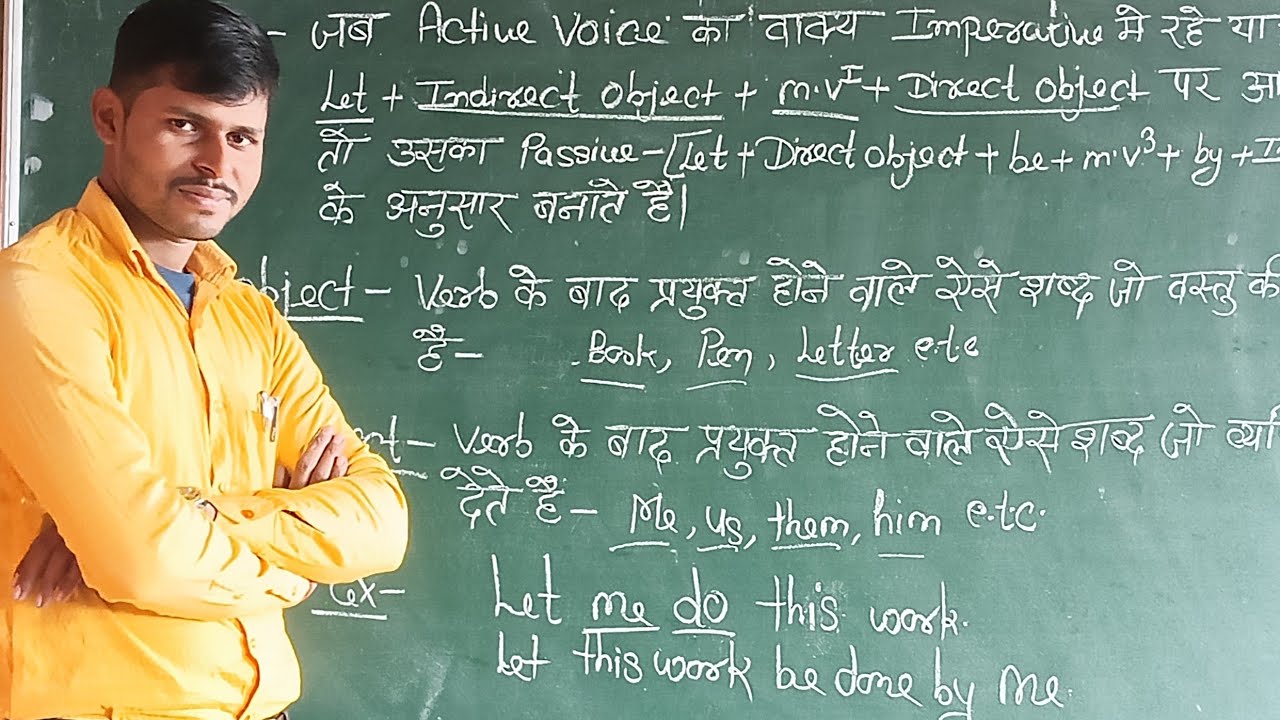 - जब Active Voice का वाक्य Imperative मे रहे या
Let + Indirect object + m.v^I + Direct object पर आ
तो उसका Passive - [Let + Direct object + be + m.v³ + by + I
के अनुसार बनाते हैं।
object - Verb के बाद प्रयुक्त होने वाले ऐसे शब्द जो वस्तु की
है - Book, Pen, Letter e.t.c
ect - Verb के बाद प्रयुक्त होने वाले ऐसे शब्द जो व्या
देते है - Me, us, them, him e.t.c.
Ex -
Let me do this work.
Let this work be done by me.